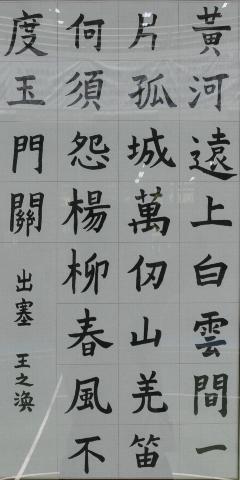 黃河遠上白雲間一
片孤城萬仞山羌笛
何須怨楊柳春風不
度玉門關
出塞 王之渙